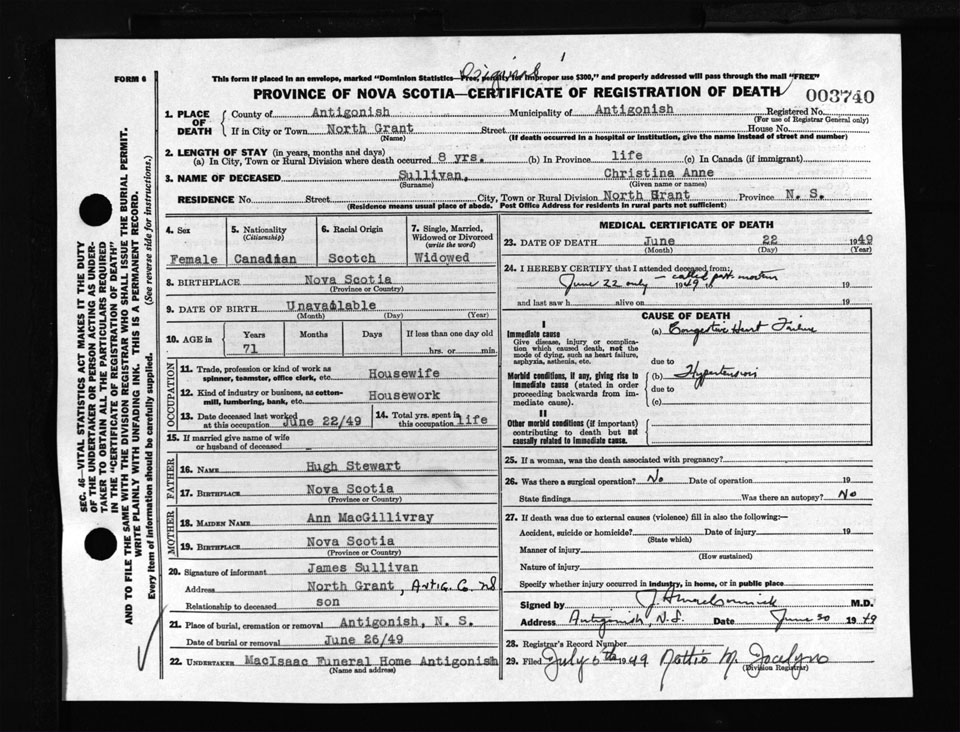 Original
FORM 6
This form if placed in an envelope, marked "Dominion Statistics—Free, penalty for improper use $300," and properly addressed will pass through the mail "FREE"
PROVINCE OF NOVA SCOTIA—CERTIFICATE OF REGISTRATION OF DEATH
003740
SEC. 46—VITAL STATISTICS ACT MAKES IT THE DUTY
OF THE UNDERTAKER OR PERSON ACTING AS UNDER-
TAKER TO OBTAIN ALL THE PARTICULARS REQUIRED
IN THE "CERTIFICATE OF REGISTRATION OF DEATH"
AND TO FILE THE SAME WITH THE DIVISION REGISTRAR WHO SHALL ISSUE THE BURIAL PERMIT.
WRITE PLAINLY WITH UNFADING INK. THIS IS A PERMANENT RECORD.
Every item of information should be carefully supplied. (See reverse side for instructions.)
1. PLACE OF DEATH
County of Antigonish Municipality of Antigonish Registered No.
(For use of Registrar General only)
If in City or Town North Grant Street House No.
(Name) (If death occurred in a hospital or institution, give the name instead of street and number)
2. LENGTH OF STAY (in years, months and days)
(a) In City, Town or Rural Division where death occurred 8 yrs. (b) In Province life (c) In Canada (if immigrant)
3. NAME OF DECEASED Sullivan, Christina Anne
(Surname) (Given name or names)
RESIDENCE No Street City, Town or Rural Division North Grant Province N. S.
(Residence means usual place of abode. Post Office Address for residents in rural parts not sufficient)
4. Sex
Female
5. Nationality
(Citizenship)
Canadian
6. Racial Origin
Scotch
7. Single, Married,
Widowed or Divorced
(write the word)
Widowed
8. BIRTHPLACE Nova Scotia
(Province or Country)
9. DATE OF BIRTH Unavailable
(Month) (Day) (Year)
10. AGE in
Years Months Days If less than one day old
71 hrs. or min.
OCCUPATION
11. Trade, profession or kind of work as
spinner, teamster, office clerk, etc. Housewife
12. Kind of industry or business, as cotton-
mill, lumbering, bank, etc. Housework
13. Date deceased last worked
at this occupation June 22/49
14. Total yrs. spent in
this occupation life
15. If married give name of wife
or husband of deceased
FATHER
16. NAME Hugh Stewart
17. BIRTHPLACE Nova Scotia
(Province or Country)
MOTHER
18. MAIDEN NAME Ann MacGillivray
19. BIRTHPLACE Nova Scotia
(Province or Country)
20. Signature of informant James Sullivan
Address North Grant, Antig. Co. NS
Relationship to deceased son
21. Place of burial, cremation or removal Antigonish, N. S.
Date of burial or removal June 26/49
22. UNDERTAKER MacIsaac Funeral Home Antigonish
(Name and address)
MEDICAL CERTIFICATE OF DEATH
23. DATE OF DEATH June 22 1949
(Month) (Day) (Year)
24. I HEREBY CERTIFY that I attended deceased from:
— called post mortem
June 22 only 1949 to 19
and last saw h alive on 19
CAUSE OF DEATH
I
Immediate cause
Give disease, injury or complica-
tion which caused death, not the
mode of dying, such as heart failure,
asphyxia, asthenia, etc.
(a) Congestive Heart Failure
due to
Morbid conditions, if any, giving rise to
immediate cause (stated in order
proceeding backwards from im-
mediate cause).
(b) Hypertension
due to
(c)
II
Other morbid conditions (if important)
contributing to death but not
causally related to immediate cause.
25. If a woman, was the death associated with pregnancy?
26. Was there a surgical operation? No Date of operation 19
State findings Was there an autopsy? No
27. If death was due to external causes (violence) fill in also the following:—
Accident, suicide or homicide? Date of injury 19
(State which)
Manner of injury
(How sustained)
Nature of injury
Specify whether injury occurred in industry, in home, or in public place
Signed by M.D.
Address Antigonish, N.S. Date June 30 1949
28. Registrar's Record Number
29. Filed July 5th 1949 M. Jocelyn
(Division Registrar)